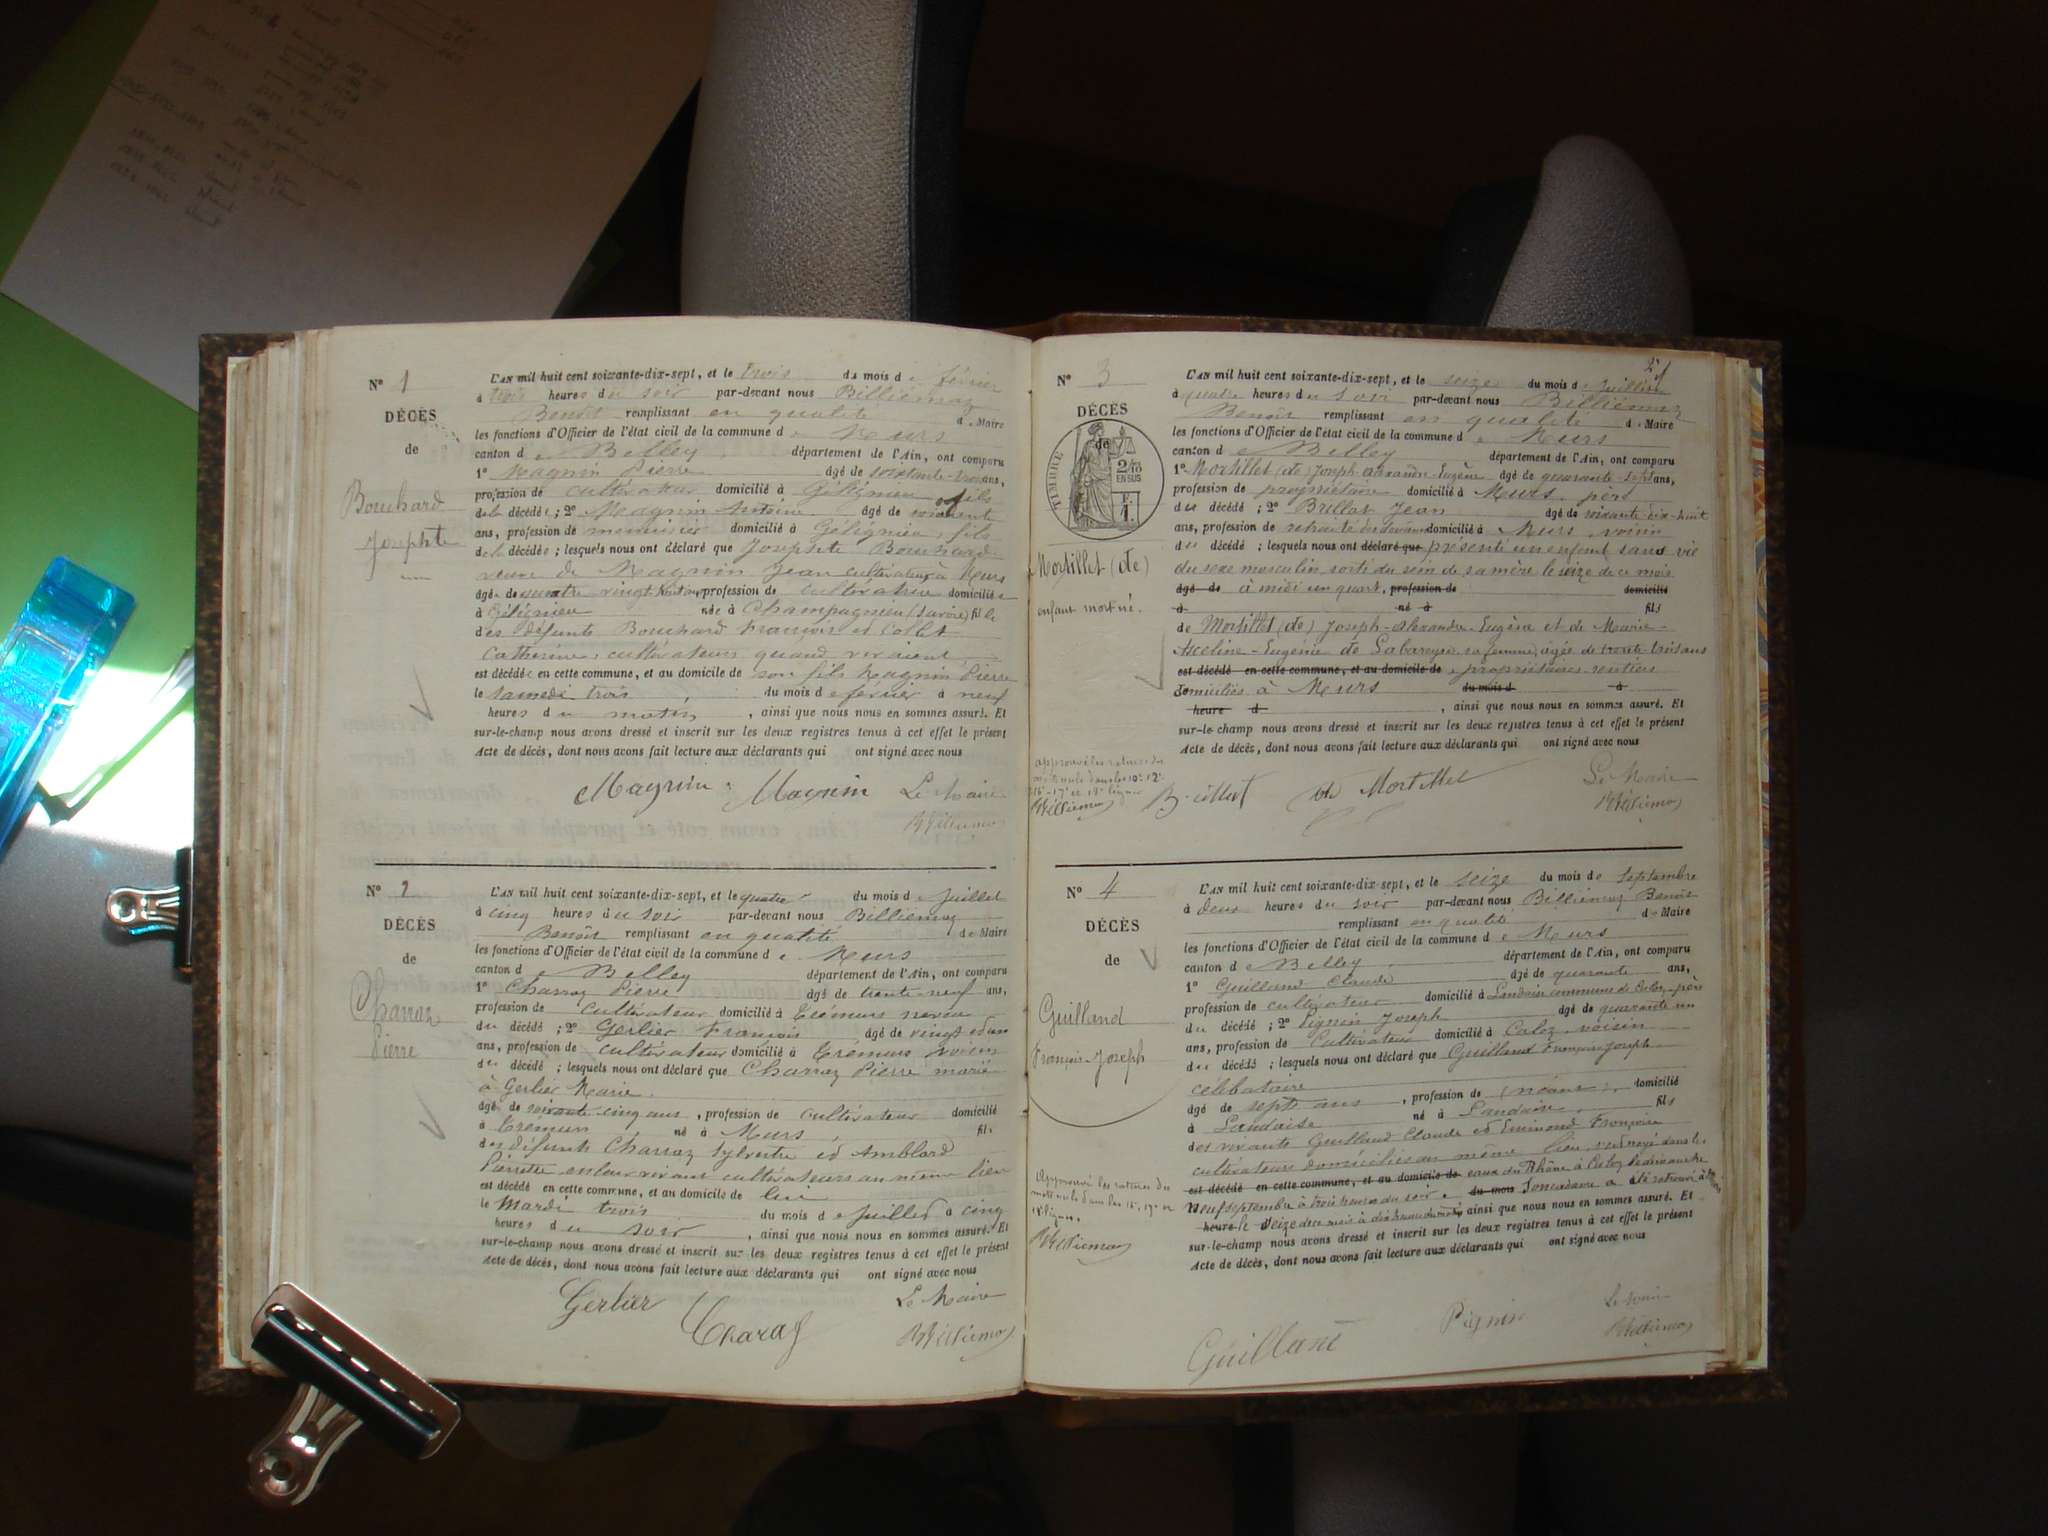 N° 1
DÉCÈS
de
Bouchard
Josephte
L'AN mil huit cent soixante-dix-sept, et le trois du mois de février
à trois heures du soir par-devant nous Billiémaz
Benoît remplissant en qualité de Maire
les fonctions d'Officier de l'état civil de la commune de Murs
canton de Belley département de l'Ain, ont comparu
1° Magnin Pierre âgé de soixante-trois ans,
profession de cultivateur domicilié à Gélignieu fils
de la décédée ; 2° Magnin Antoine âgé de soixante
ans, profession de menuisier domicilié à Gélignieu, fils
de la décédée ; lesquels nous ont déclaré que Josephte Bouchard
veuve de Magnin Jean cultivateur à Murs
âgée de quatre vingt huit ans, profession de cultivatrice domiciliée
à Gélignieu née à Champagnieu (Savoie) fille
des défunts Bouchard François et Collet
Catherine, cultivateurs quand vivaient
est décédée en cette commune, et au domicile de son fils Magnin Pierre
le samedi trois du mois de février à neuf
heures du matin, ainsi que nous nous en sommes assuré. Et
sur-le-champ nous avons dressé et inscrit sur les deux registres tenus à cet effet le présent
Acte de décès, dont nous avons fait lecture aux déclarants qui ont signé avec nous
Magnin Magnin Le Maire
BBilliémaz
N° 2
DÉCÈS
de
Charraz
Pierre
L'AN mil huit cent soixante-dix-sept, et le quatre du mois de Juillet
à cinq heures du soir par-devant nous Billiémaz
Benoît remplissant en qualité de Maire
les fonctions d'Officier de l'état civil de la commune de Murs
canton de Belley département de l'Ain, ont comparu
1° Charraz Pierre âgé de trente-neuf ans,
profession de cultivateur domicilié à Crémurs neveu
du décédé ; 2° Gerlier François âgé de vingt et un
ans, profession de cultivateur domicilié à Crémurs voisin
du décédé ; lesquels nous ont déclaré que Charraz Pierre marié
à Gerlier Marie
âgé de soixante cinq ans, profession de cultivateur domicilié
à Crémurs né à Murs, fils
des défunts Charraz Sylvestre et Amblard
Pierrette en leur vivant cultivateurs au même lieu
est décédé en cette commune, et au domicile de lui
le Mardi trois du mois de Juillet à cinq
heures du soir, ainsi que nous nous en sommes assuré. Et
sur-le-champ nous avons dressé et inscrit sur les deux registres tenus à cet effet le présent
Acte de décès, dont nous avons fait lecture aux déclarants qui ont signé avec nous
Gerlier Charaz Le Maire
BBilliémaz
21
N° 3
DÉCÈS
de
TIMBRE
2/10
EN SUS
F.
1.
Mortillet (de)
enfant mort né.
L'AN mil huit cent soixante-dix-sept, et le seize du mois de Juillet
à quatre heures du soir par-devant nous Billiémaz
Benoît remplissant en qualité de Maire
les fonctions d'Officier de l'état civil de la commune de Murs
canton de Belley département de l'Ain, ont comparu
1° Mortillet (de) Joseph Alexandre Eugène âgé de quarante-sept ans,
profession de propriétaire domicilié à Murs, père
du décédé ; 2° Brillat Jean âgé de soixante-dix-huit
ans, profession de retraité des domicilié à Murs, voisin
du décédé ; lesquels nous ont déclaré que présenté un enfant sans vie
du sexe masculin sorti du sein de sa mère le seize de ce mois
âgé de à midi un quart, profession de domicilié
à né à fils
de Mortillet (de) Joseph-Alexandre-Eugène et de Marie-
Asceline-Eugénie de Labareyre, sa femme, âgée de trente trois ans
est décédé en cette commune, et au domicile de propriétaires-rentiers
domiciliés à Murs du mois d à
heure d , ainsi que nous nous en sommes assuré. Et
sur-le-champ nous avons dressé et inscrit sur les deux registres tenus à cet effet le présent
Acte de décès, dont nous avons fait lecture aux déclarants qui ont signé avec nous
approuvé les ratures des
mots nuls dans les 10e 12e
16e 17e et 18e lignes
BBilliémaz
Brillat de Mortillet Le Maire
BBilliémaz
N° 4
DÉCÈS
de
Guilland
François-Joseph
L'AN mil huit cent soixante-dix-sept, et le seize du mois de septembre
à deux heures du soir par-devant nous Billiémaz Benoît
remplissant en qualité de Maire
les fonctions d'Officier de l'état civil de la commune de Murs
canton de Belley département de l'Ain, ont comparu
1° Guilland Claude âgé de quarante ans,
profession de cultivateur domicilié à Landaise commune de Culoz, père
du décédé ; 2° Pignin Joseph âgé de quarante un
ans, profession de Cultivateur domicilié à Culoz, voisin
du décédé ; lesquels nous ont déclaré que Guilland François Joseph
célibataire
âgé de sept ans, profession de (néant), domicilié
à Landaise né à Landaise, fils
des vivants Guilland Claude et Eminond Françoise
cultivateurs domiciliés au même lieu, s'est noyé dans les
est décédé en cette commune, et au domicile de eaux du Rhône à Culoz le dimanche
Neuf septembre à trois heures du soir du mois Son cadavre a été retrouvé à Murs
heure le seize de ce mois à dix heures du matin, ainsi que nous nous en sommes assuré. Et
sur-le-champ nous avons dressé et inscrit sur les deux registres tenus à cet effet le présent
Acte de décès, dont nous avons fait lecture aux déclarants qui ont signé avec nous
Approuvé les ratures des
mots nuls dans les 16e, 17e et
18e lignes.
BBilliémaz
Guilland Pignin Le Maire
BBilliémaz